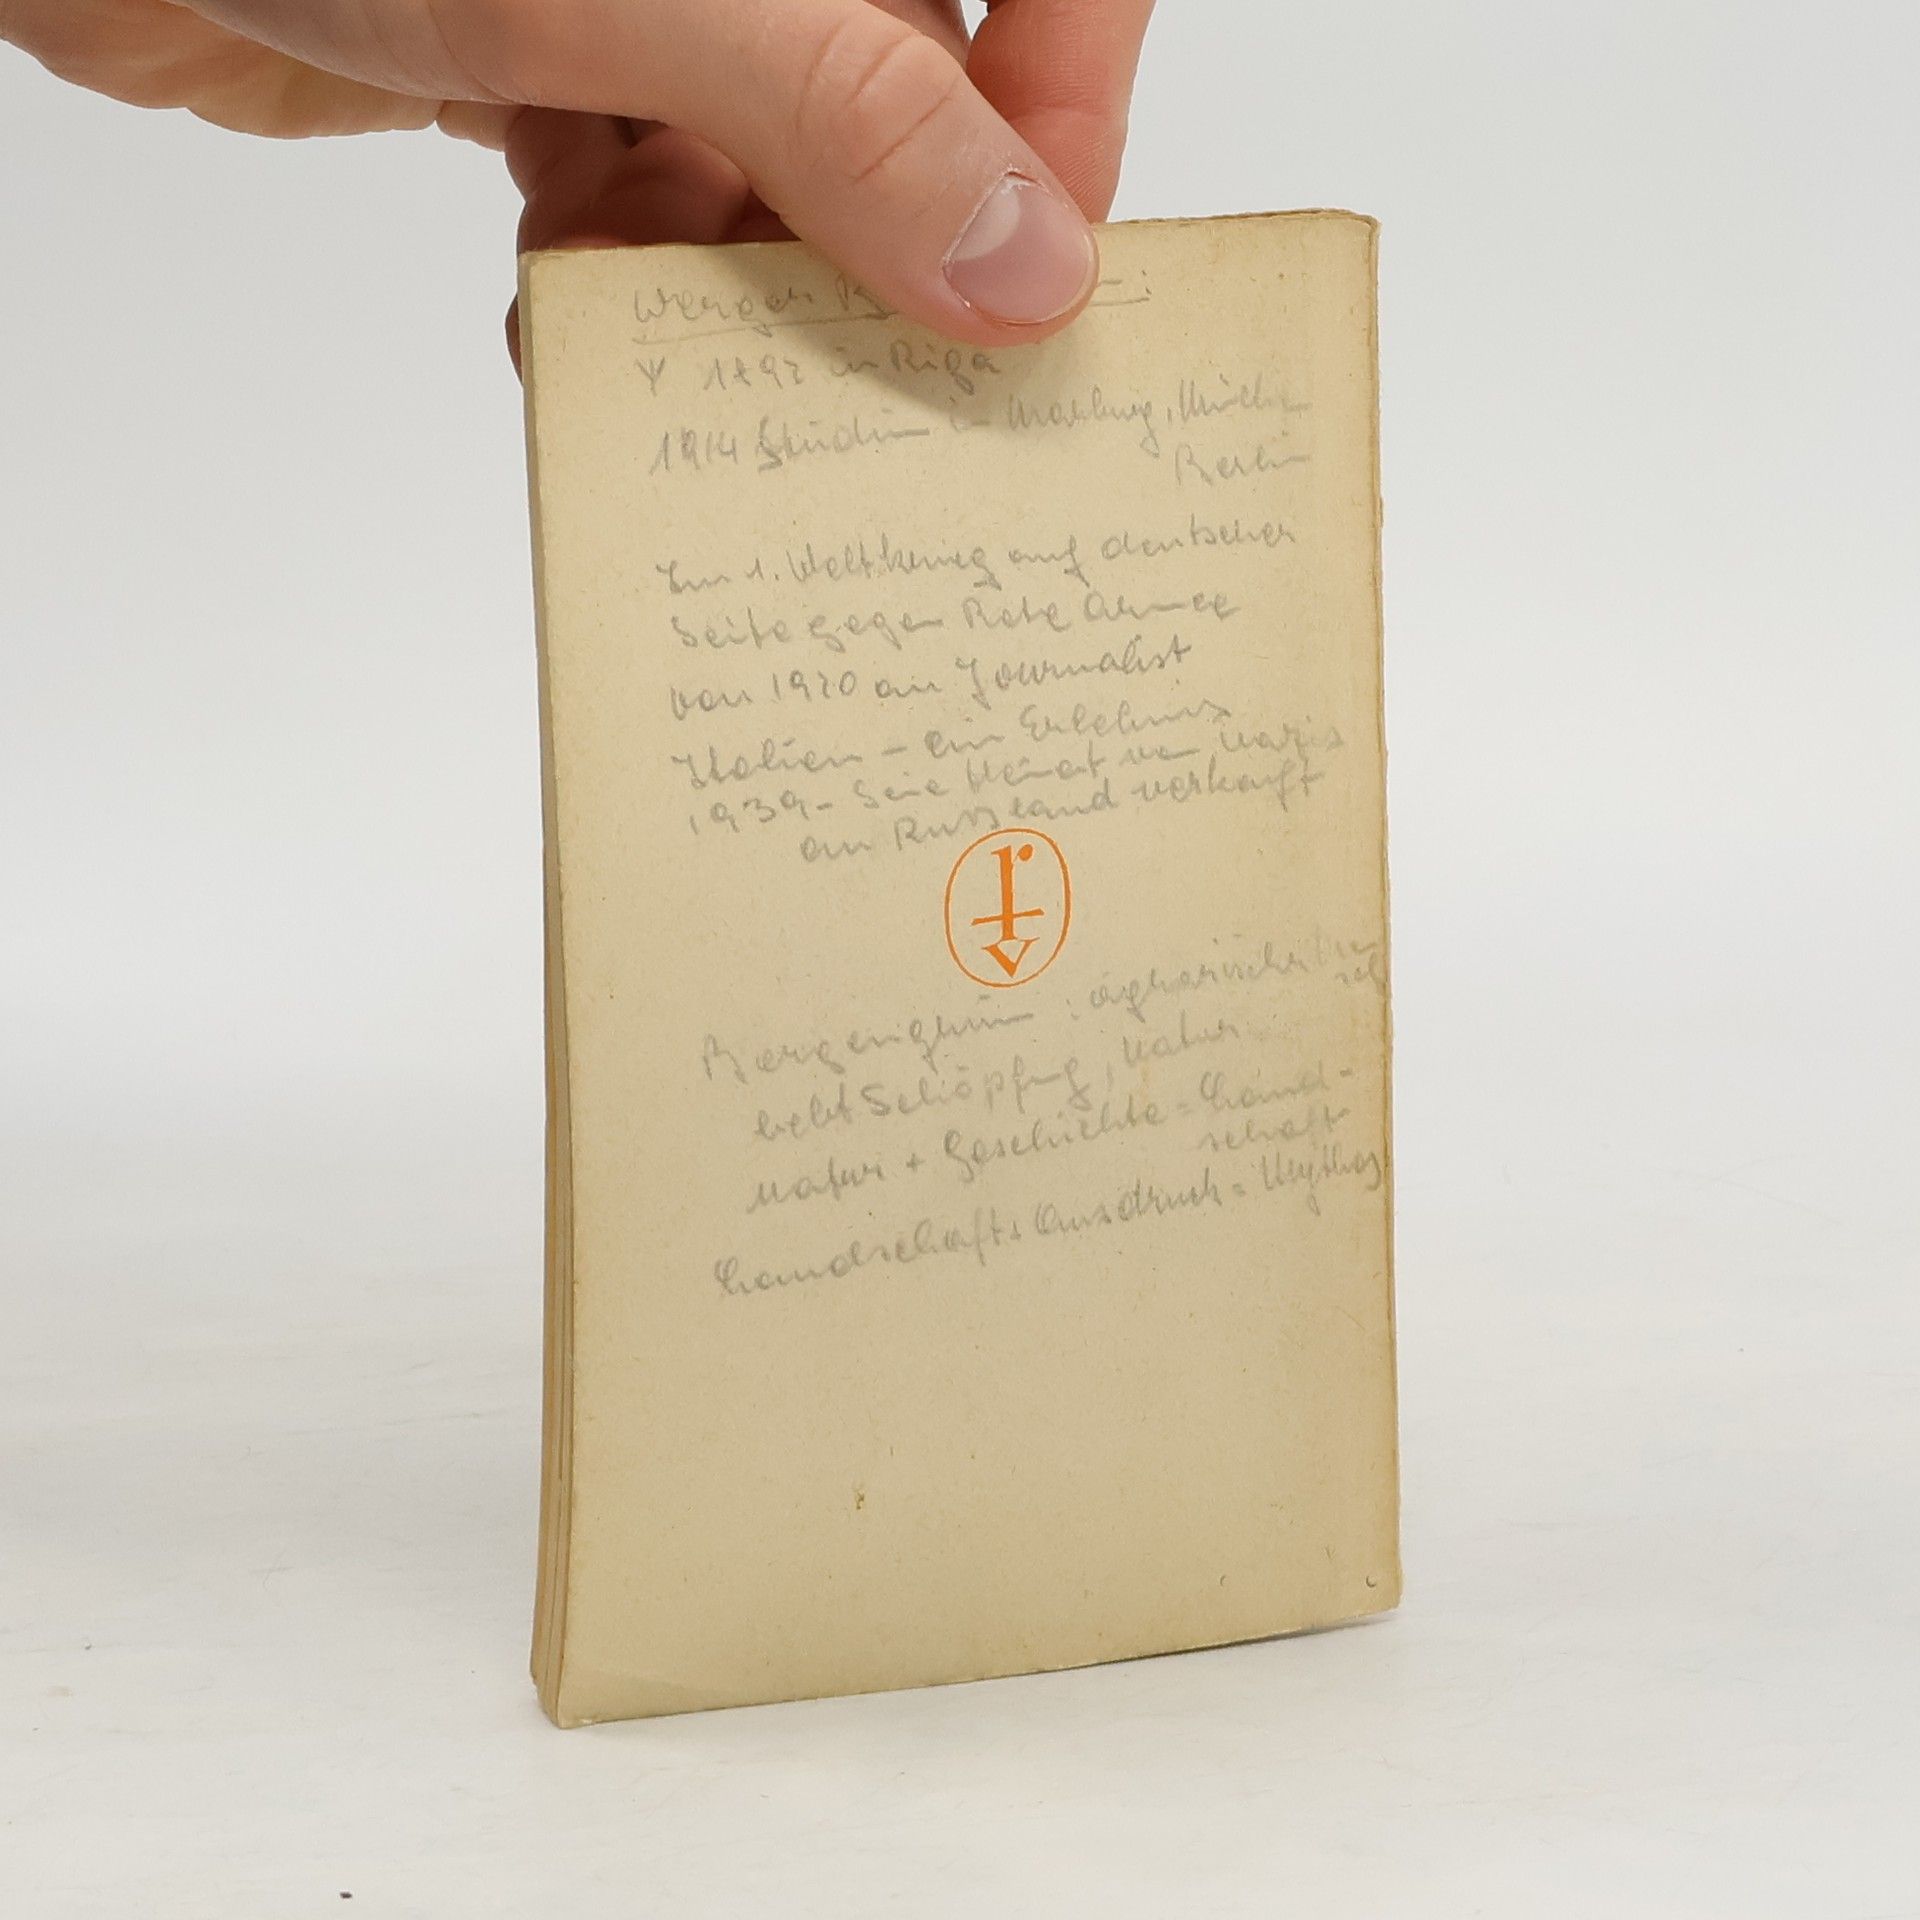 Werner B
1892 in Riga
1914 Studium in Marburg, München
Berlin
Im 1. Weltkrieg auf deutscher
Seite gegen Rote Armee
von 1920 an Journalist
Italien - ein Erlebnis
1939 - Seine Heimat von Nazis
an Russland verkauft
rv
Bergengruen : agrarischer
liebt Schöpfung, Natur
Natur + Geschichte = Land-
schaft
Landschaft + Ausdruck = Mythos